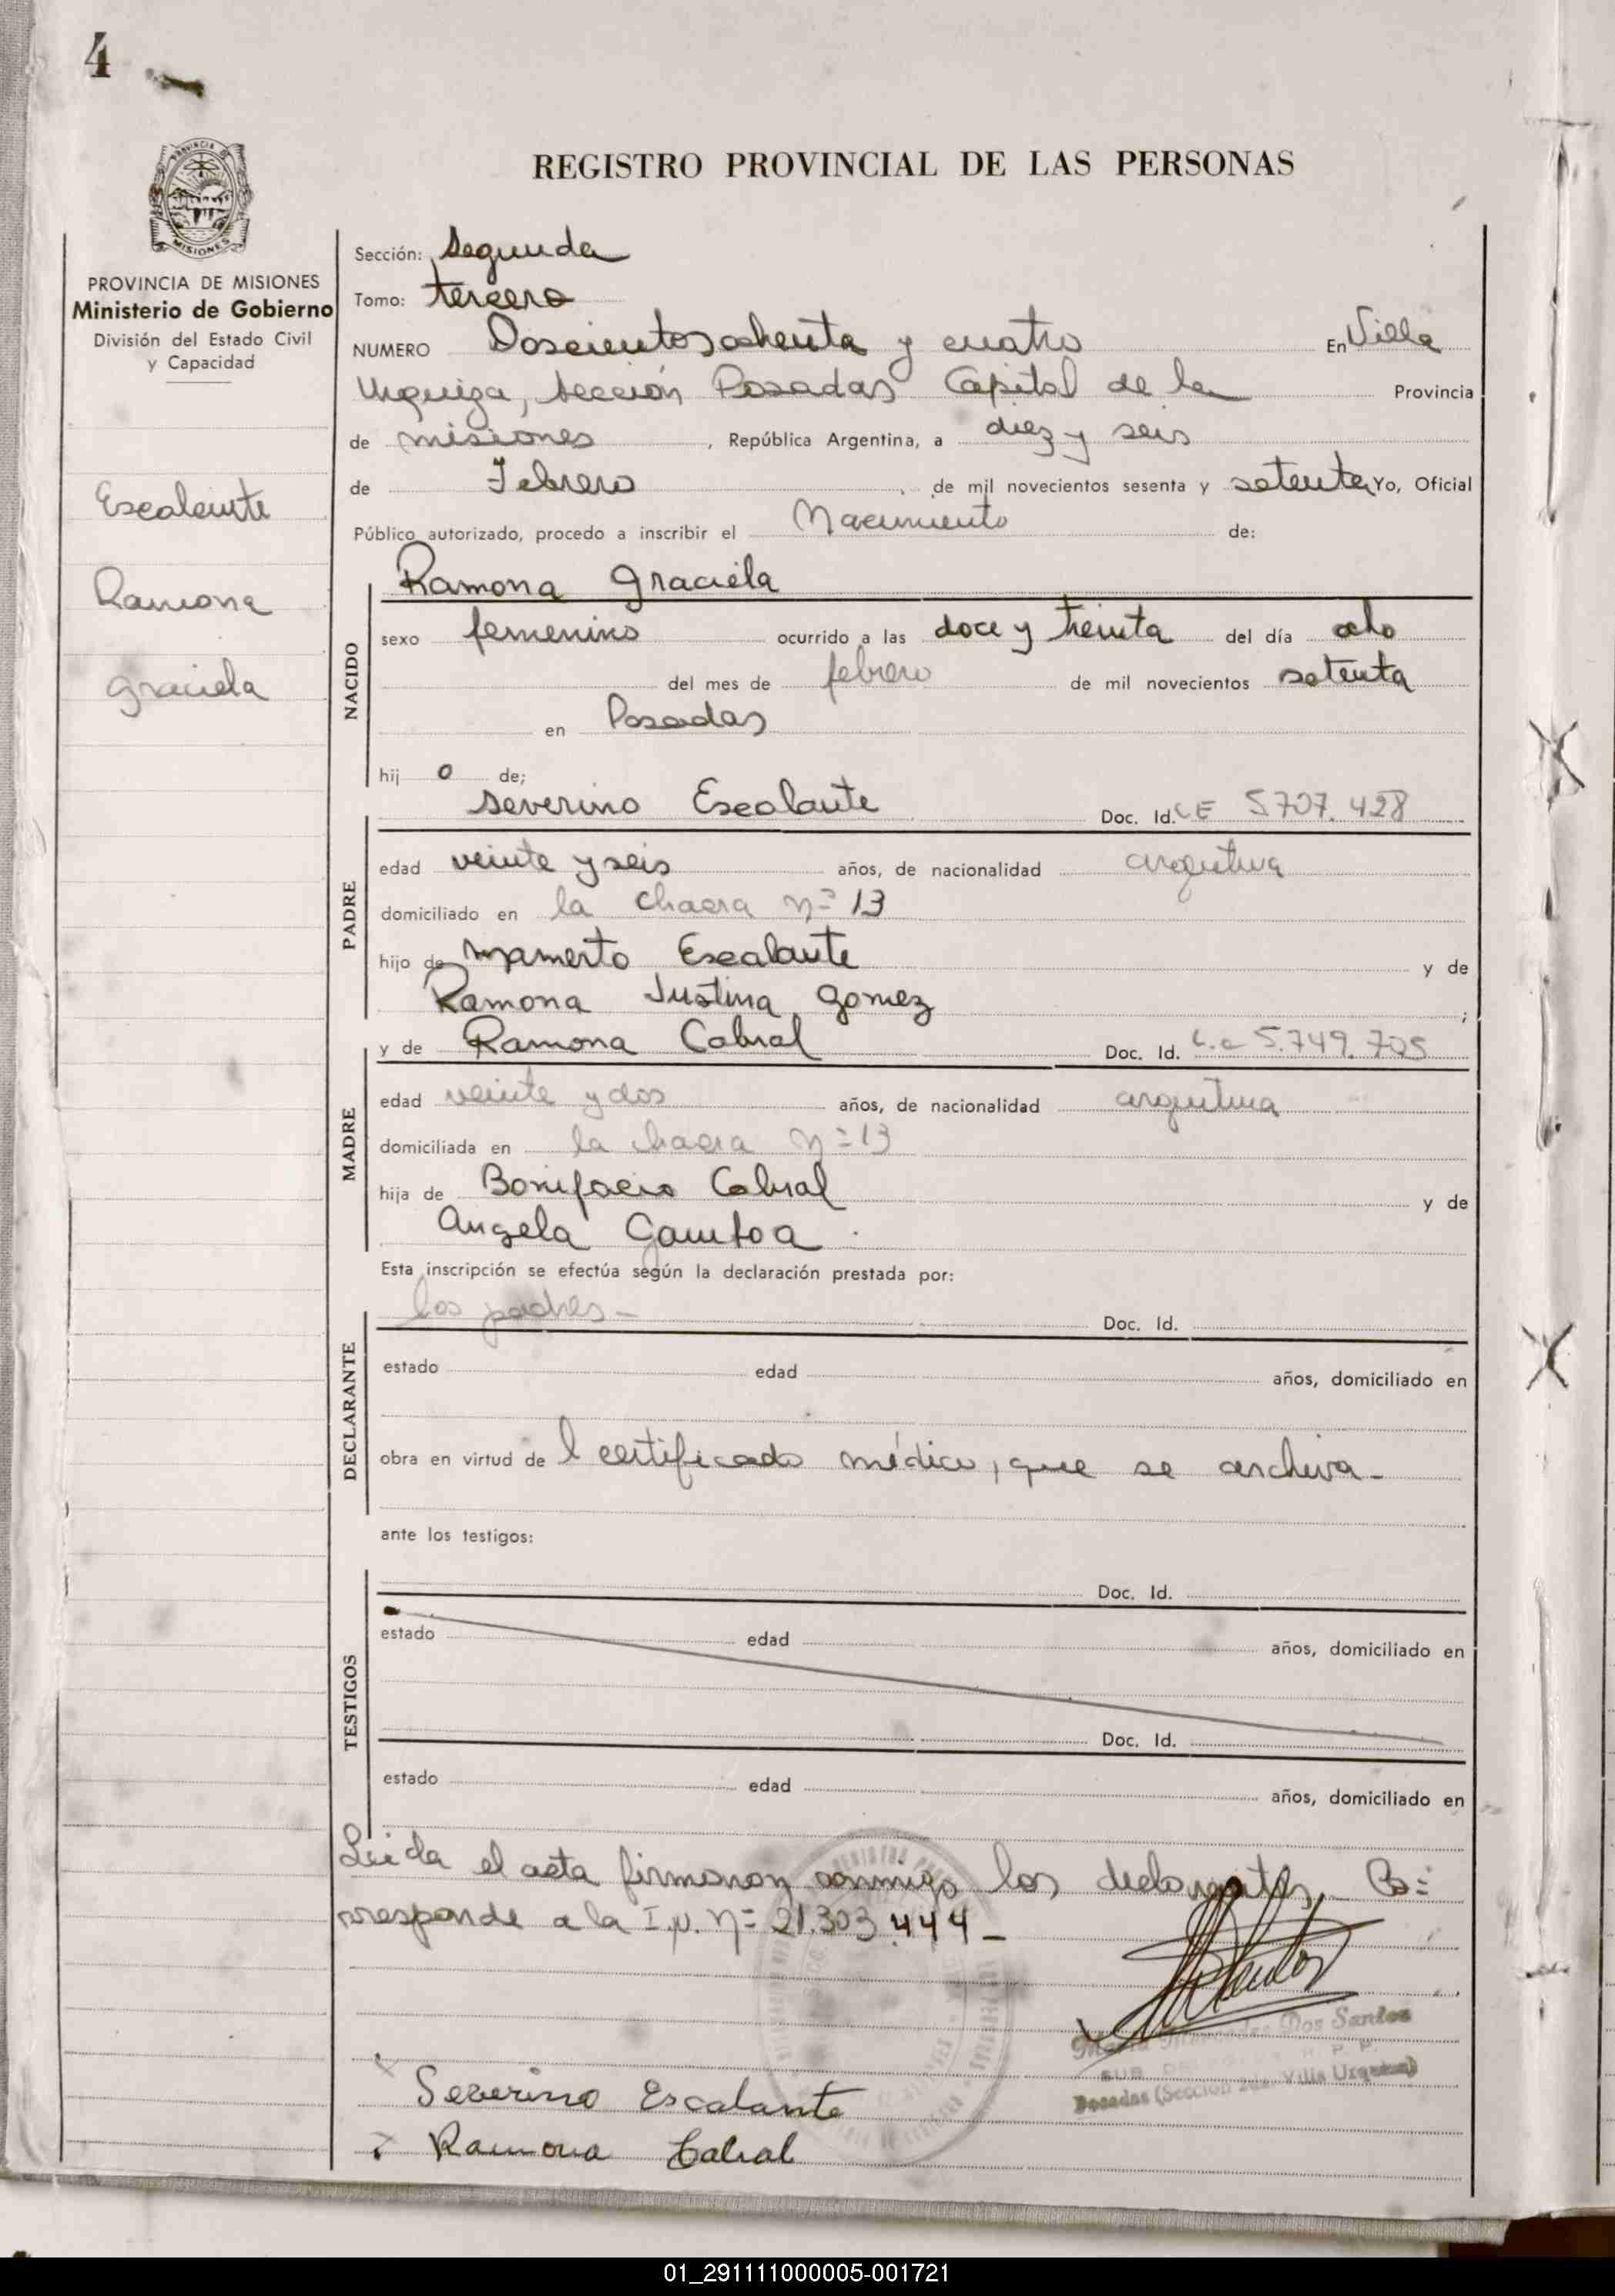 4
PROVINCIA DE
MISIONES
REGISTRO PROVINCIAL DE LAS PERSONAS
PROVINCIA DE MISIONES
Ministerio de Gobierno
División del Estado Civil
y Capacidad
Escalante
Ramona
Graciela
Sección: Segunda
Tomo: tercero
NUMERO Doscientos ochenta y cuatro En Villa
Urquiza, Sección Posadas Capital de la Provincia
de misiones, República Argentina, a diez y seis
de Febrero de mil novecientos sesenta y setenta Yo, Oficial
Público autorizado, procedo a inscribir el Nacimiento de:
Ramona Graciela
NACIDO
sexo femenino ocurrido a las doce y treinta del día ocho
del mes de febrero de mil novecientos setenta
en Posadas
hij o de;
Severino Escalante Doc. Id. LE 5.707.428
PADRE
edad veinte y seis años, de nacionalidad argentina
domiciliado en la chacra nº 13
hijo de Mamerto Escalante y de
Ramona Justina Gomez ;
y de Ramona Cabral Doc. Id. L.c 5.749.705
MADRE
edad veinte y dos años, de nacionalidad argentina
domiciliada en la chacra nº 13
hija de Bonifacio Cabral y de
Angela Gamboa.
Esta inscripción se efectúa según la declaración prestada por:
los padres- Doc. Id.
DECLARANTE
estado edad años, domiciliado en
obra en virtud de l certificado médico, que se archiva-
ante los testigos:
Doc. Id.
TESTIGOS
estado edad años, domiciliado en
Doc. Id.
estado edad años, domiciliado en
Leida el acta firmaron conmigo los declarantes, Co=
rresponde a la I.N. Nº 21.303.444-
Dos Santos
Posadas (Sección 2da. Villa Urquiza)
Severino Escalante
Ramona Cabral
01_291111000005-001721